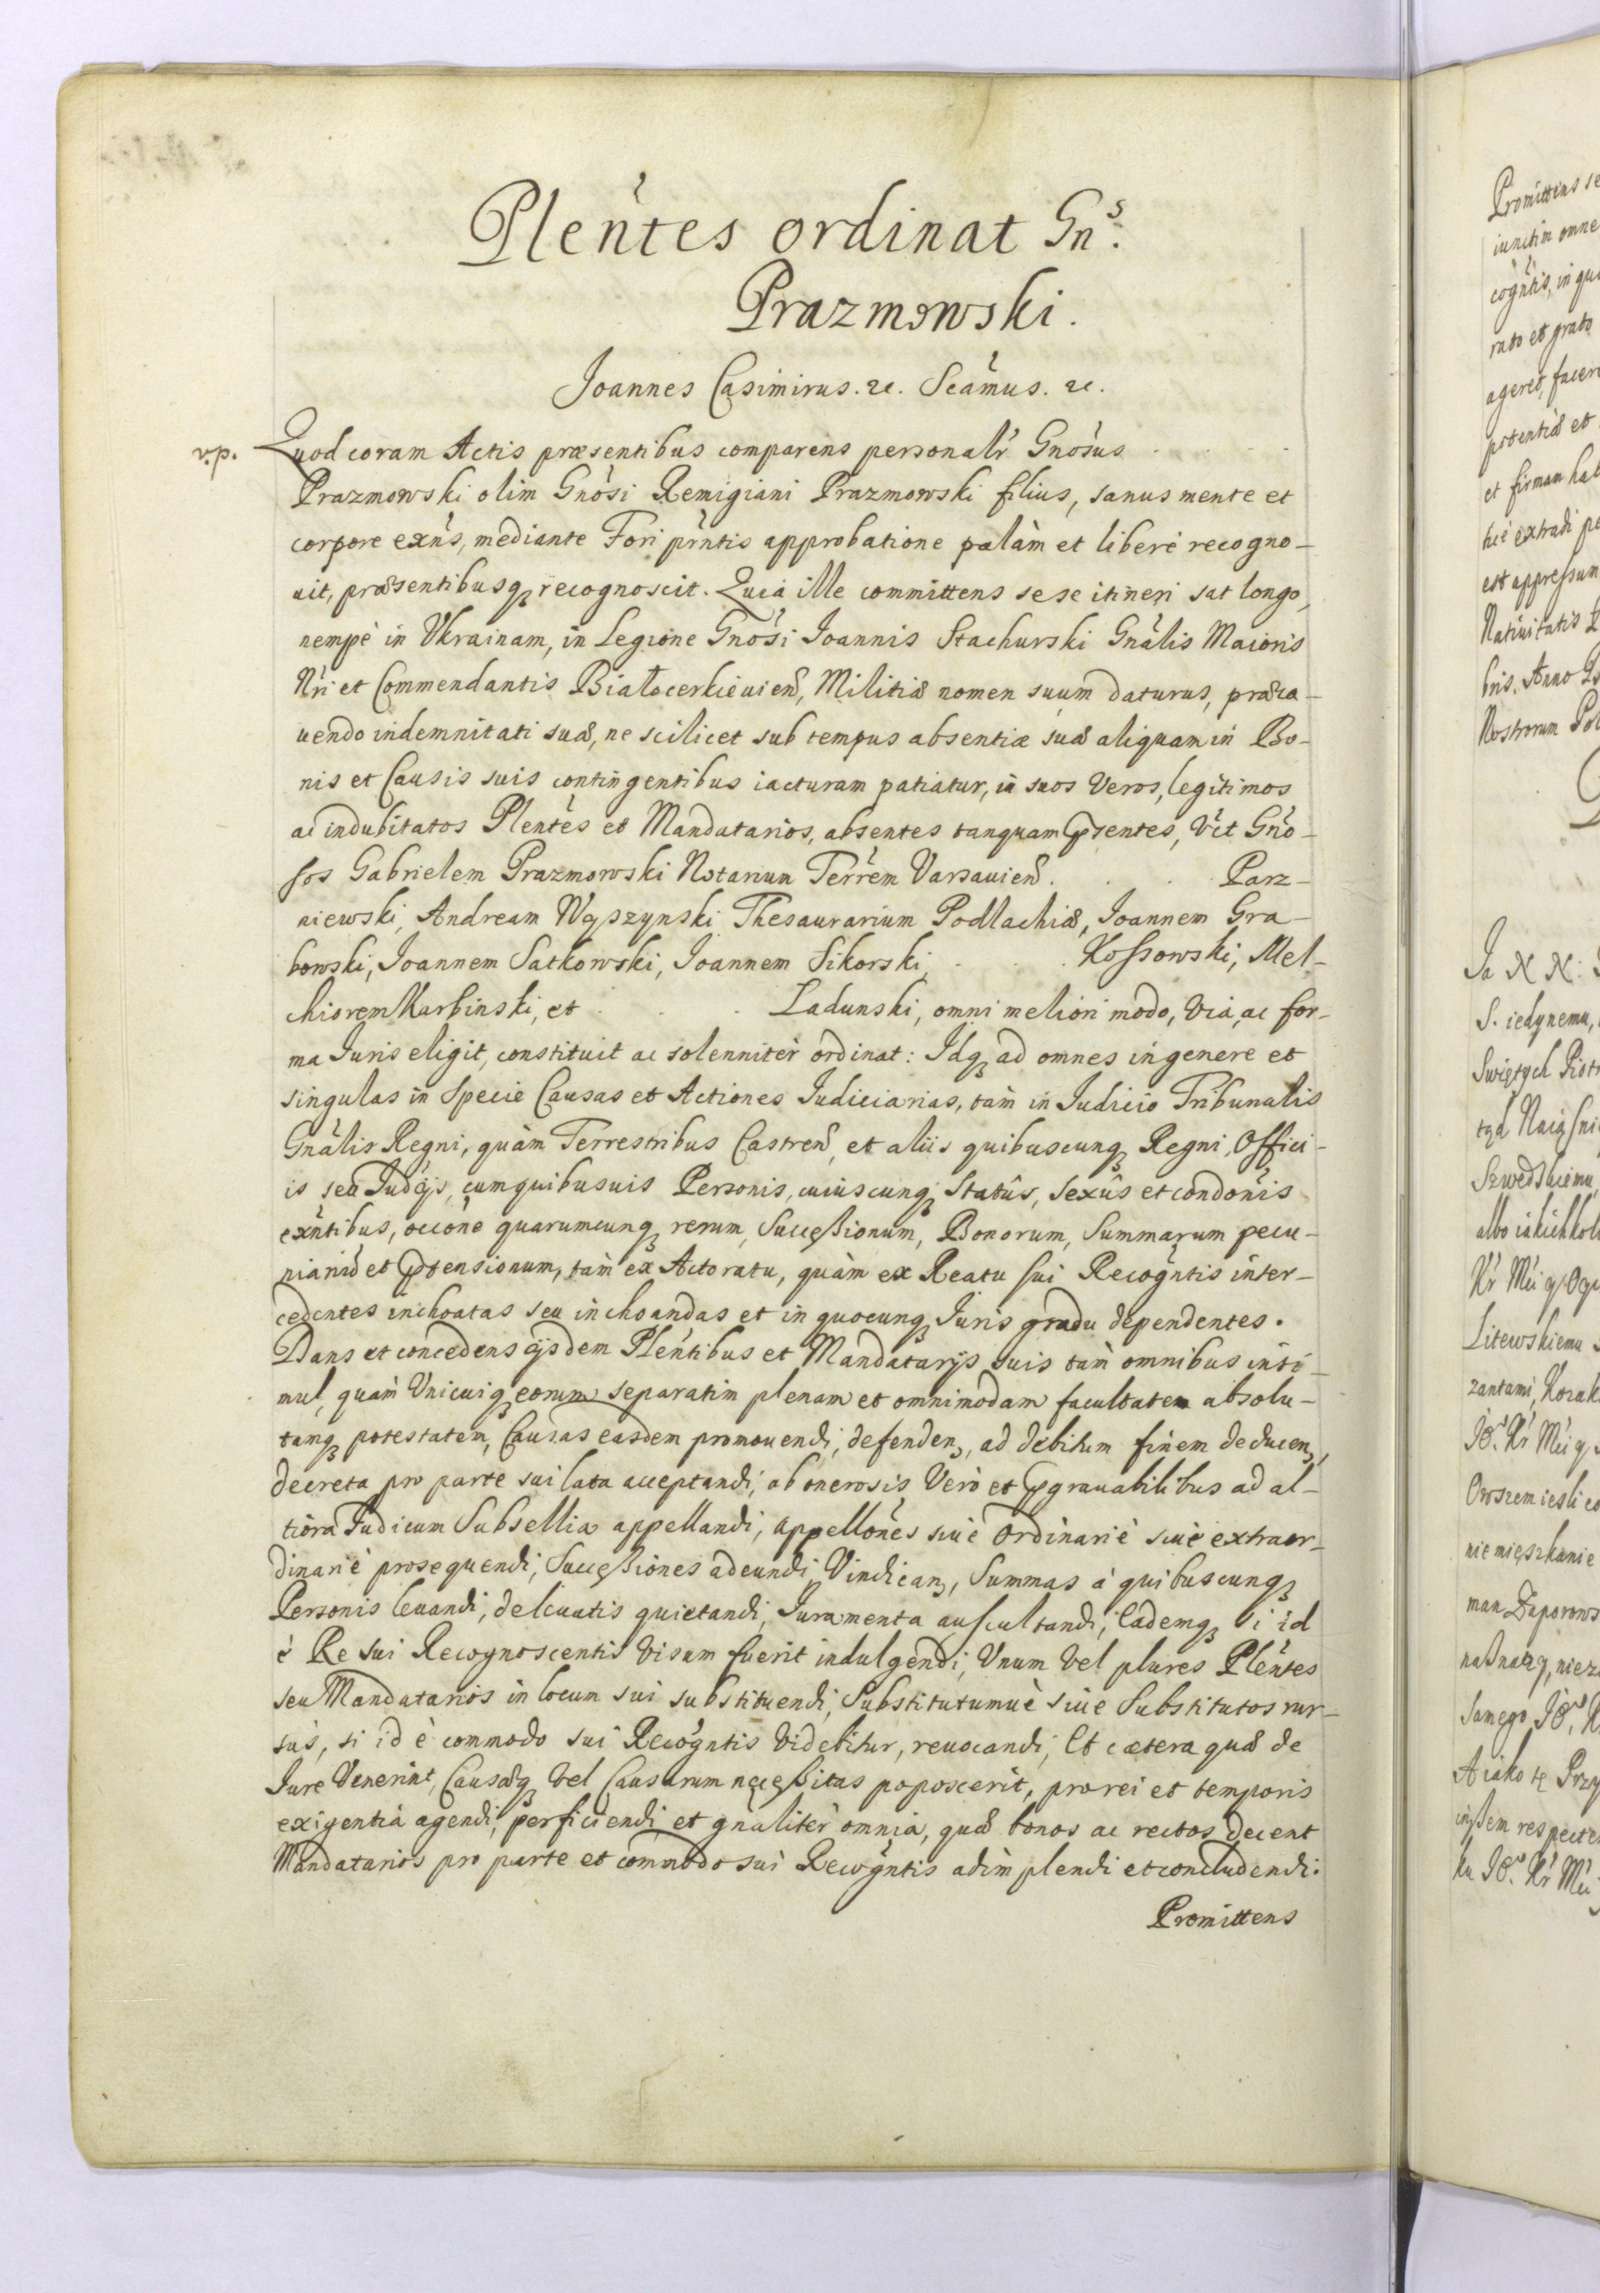 Plentes ordinat Gns.
Prazmowski.
Joannes Casimirus. &c. Scamus. &c.
Quod coram Actis præsentibus comparens personalr Gnosus . . . .
Prazmowski olim Gnosi Remigiani Prazmowski filius, sanus mente et
corpore exns, mediante Fori pntis approbatione palàm et liberè recogno-
uit, præsentibusq recognoscit. Quia ille committens sese itineri sat longo,
nempè in Vkrainam, in Legione Gnosi Joannis Stachurski Gnalis Maioris
Nri et Commendantis Białocerkieuien, Militiæ nomen suum daturus, præca-
uendo indemnitati suæ, ne scilicet sub tempus absentiæ suæ aliquam in Bo-
nis et Causis suis contingentibus iacturam patiatur, in suos Veros, legitimos
ac indubitatos Plentes et Mandatarios, absentes tanquam pręsentes, Vit Gno-
sos Gabrielem Prazmowski Notarium Terrem Varsauien . . . Parz-
niewski, Andream Wyszynski Thesaurarium Podlachiæ, Joannem Gra-
bowski, Joannem Satkowski, Joannem Sikorski, . . . Kossowski, Mel-
chiorem Karbinski, et . . . Ladunski, omni meliori modo, via, ac for-
ma Juris eligit, constituit ac solennitèr ordinat: Idq ad omnes in genere et
singulas in Specie Causas et Actiones Judiciarias, tàm in Judicio Tribunalis
Gnalis Regni, quàm Terrestribus Castren, et aliis quibuscunq Regni, Offici-
is seu Judcijs, cum quibusuis Personis, cuiuscunq Statûs, Sexûs et condonis
exntibus, occone quarumcunq rerum, Successionum, Bonorum, Summarum pecu-
niariu et Prætensionum, tàm ex Actoratu, quàm ex Reatu sui Recogntis inter-
cedentes inchoatas seu inchoandas et in quocunq Juris gradu dependentes.
Dans et concedens ijsdem Plentibus et Mandatarijs suis tàm omnibus insi-
mul, quàm Vnicuiq eorum separatim plenam et omnimodam facultatem absolu-
tamq potestatem, Causas easdem promouendi, defenden, ad debitum finem deducen,
decreta pro parte sui lata acceptandi, ab onerosis Verò et prægrauabilibus ad al-
tiora Judicum Subsellia appellandi, appellones siuè ordinariè siuè extraor-
dinariè prosequendi, Successiones adeundi, Vindican, Summas à quibuscunq
Personis leuandi, de leuatis quietandi, Juramenta auscultandi, Eademq si id
è Re sui Recognoscentis visum fuerit indulgendi, Vnum vel plures Plentes
seu Mandatarios in locum sui substituendi, Substitutumuè siue Substitutos rur-
sùs, si id è commodo sui Recogntis videbitur, reuocandi, Et cætera quæ de
Jure Venerint, Causæq vel Causarum necessitas poposcerit, pro rei et temporis
exigentia agendi, perficiendi et gnalitèr omnia, quæ bonos ac rectos decent
Mandatarios pro parte et commodo sui Recogntis adimplendi et concludendi.
Promittens
Promittens
iunctim omne
rato et grato
potentiæ et
et firmam
Natiuitatis
Anno
Nostrorum
Ja N N:
S. iedynemu,
Swiętych
Szwedskiemu
Litewskiemu
nie mięszkanie